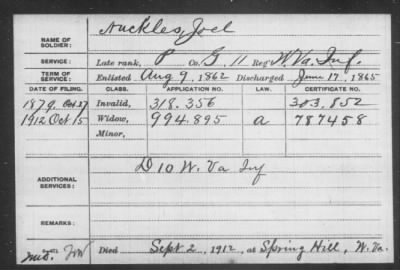 NAME OF SOLDIER: Nuckles, Joel
SERVICE: Late rank, P Co. G, 11 Reg't W. Va. Inf.
TERM OF SERVICE: Enlisted Aug 9, 1862 Discharged June 17, 1865
DATE OF FILING. CLASS. APPLICATION NO. LAW. CERTIFICATE NO.
1879. Oct 27 Invalid, 318.356 303.852
1912 Oct 15 Widow, 994.895 a 787458
Minor,
ADDITIONAL SERVICES: D 10 W. Va Inf
REMARKS:
Died Sept 2, 1912, at Spring Hill, W. Va.